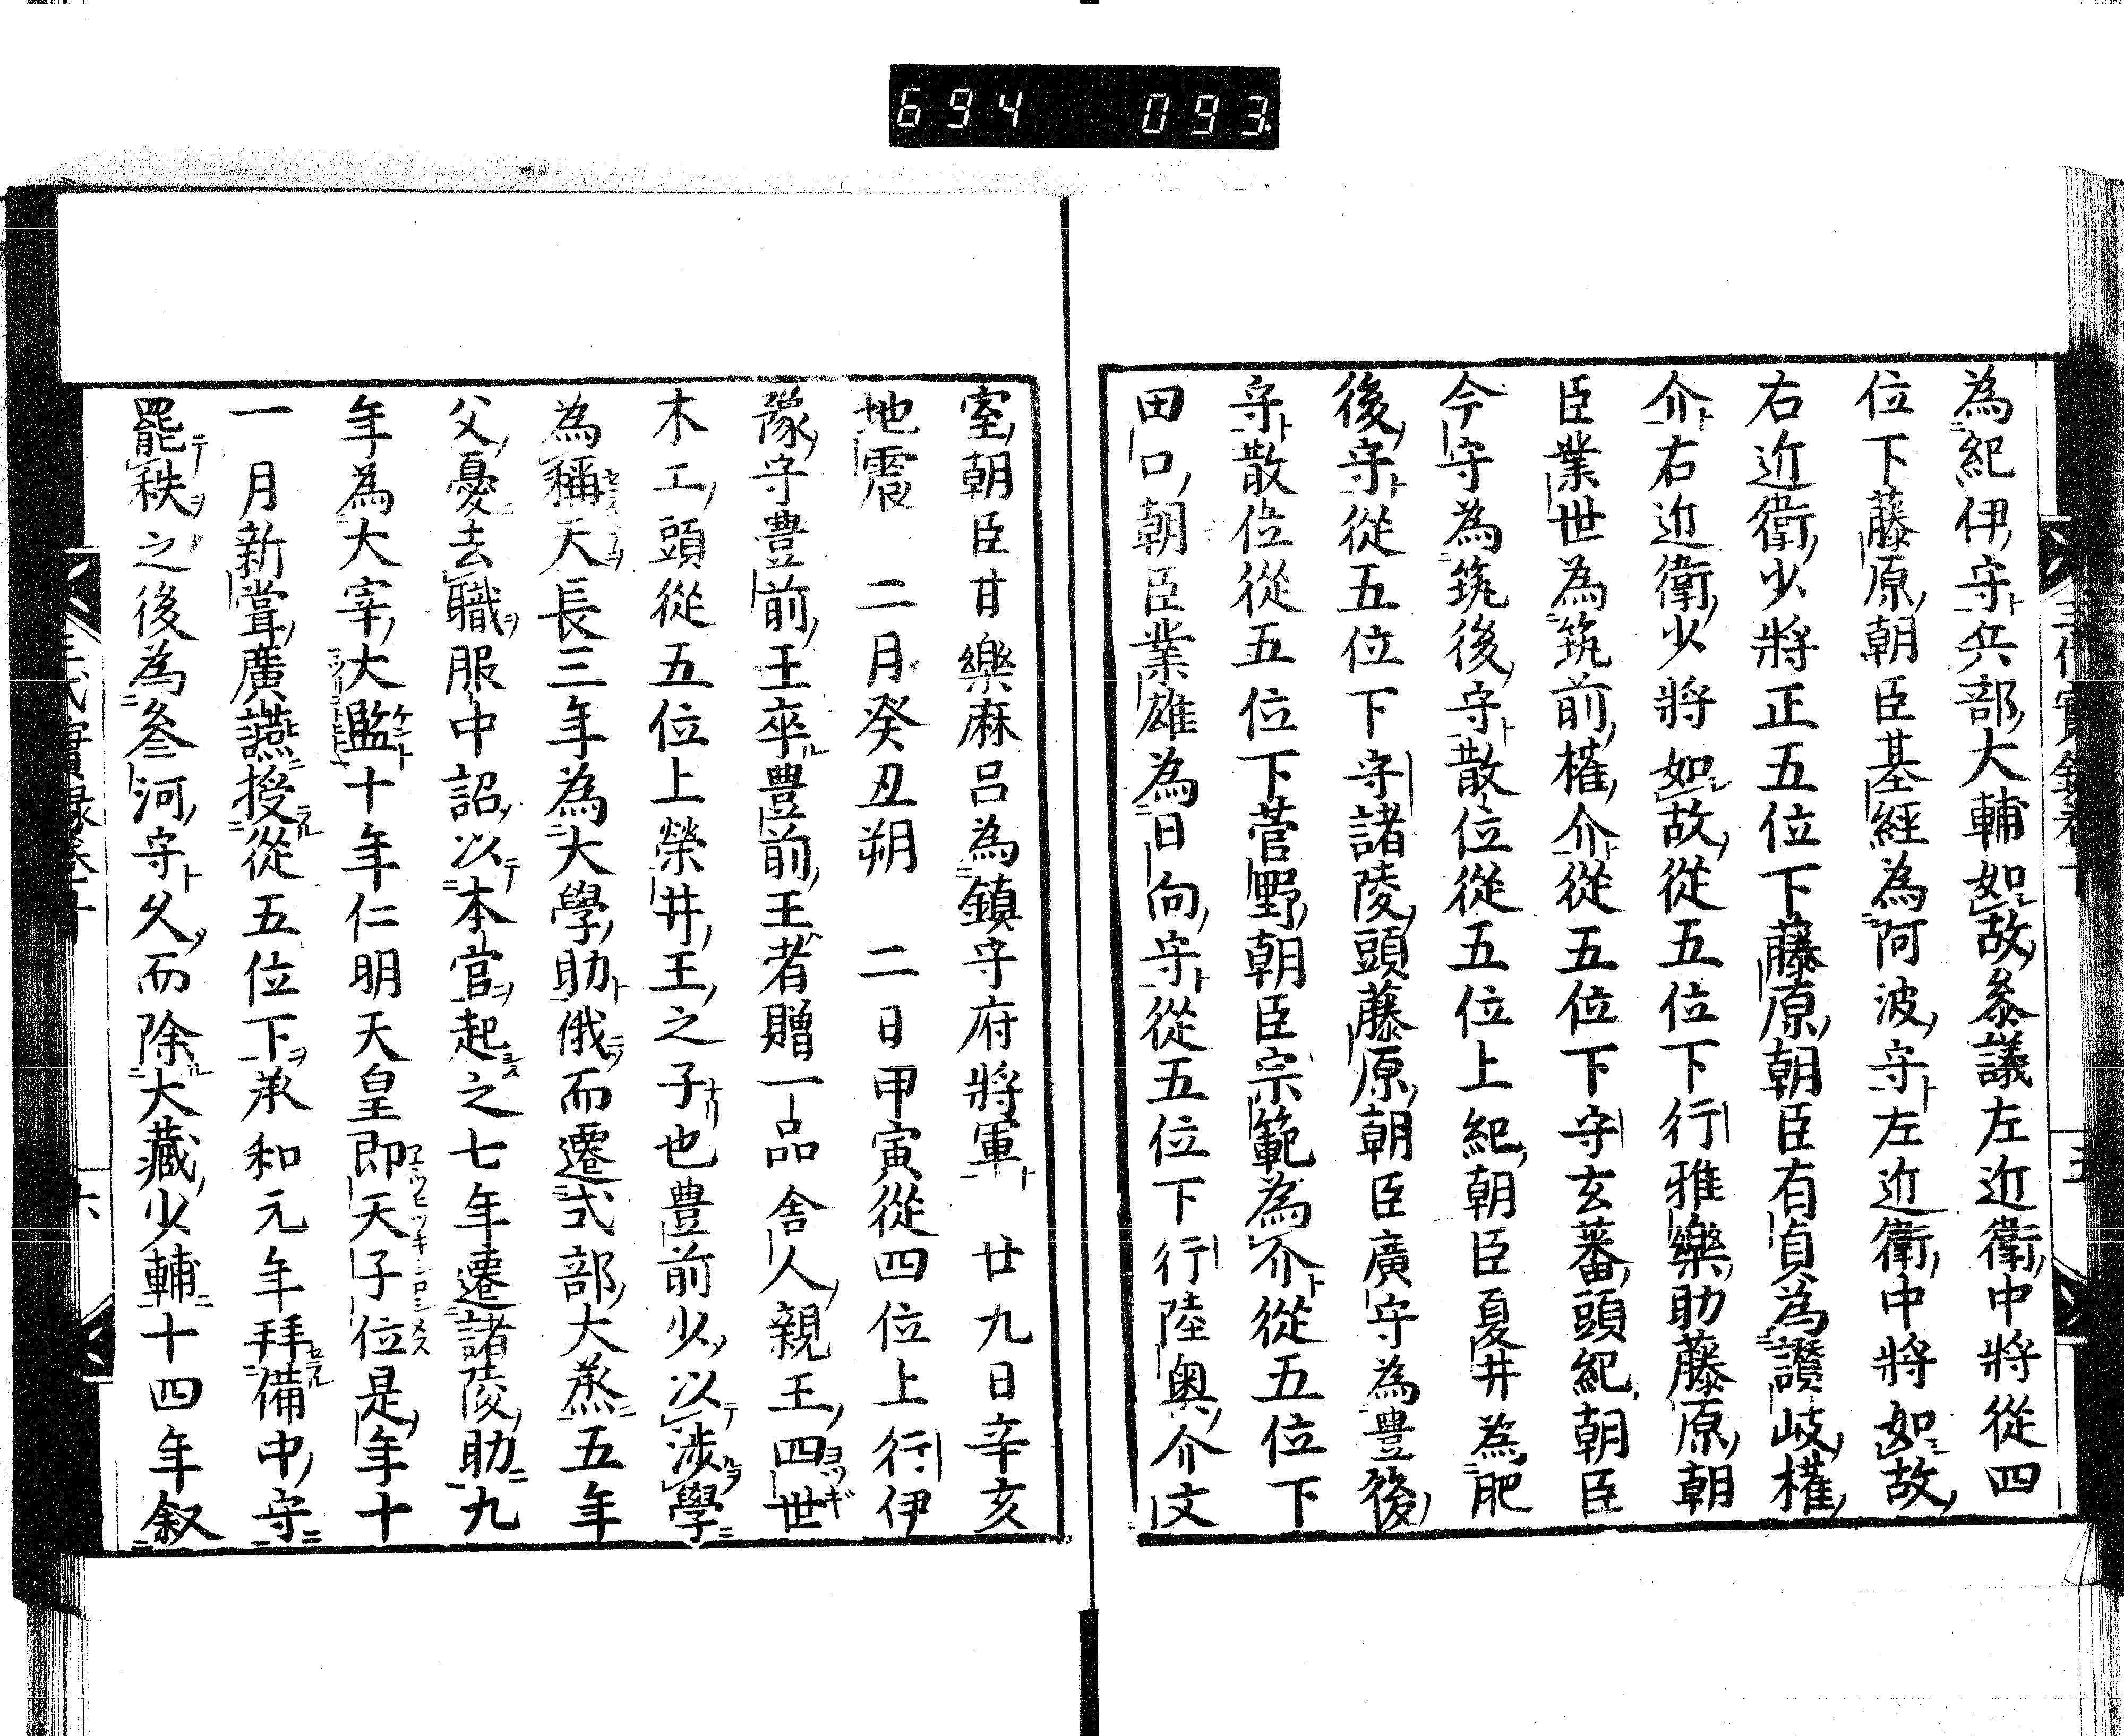 694 093
為紀伊守兵部大輔如故參議左近衛中將從四
位下藤原朝臣基經為阿波守左近衛中將如故
右近衛少將正五位下藤原朝臣有貞為讚岐權
介右近衛少將如故從五位下行雅樂助藤原朝
臣業世為筑前權介從五位下守玄蕃頭紀朝臣
今守為筑後守散位從五位上紀朝臣夏井為肥
後守從五位下守諸陵頭藤原朝臣廣守為豊後
守散位從五位下菅野朝臣宗範為介從五位下
田口朝臣業雄為日向守從五位下行陸奥介文
室朝臣甘樂麻呂為鎮守府將軍 廿九日辛亥
地震 二月癸丑朔 二日甲寅從四位上行伊
豫守豊前王卒豊前王者贈一品舎人親王四世
木工頭從五位上榮井王之子也豊前少以涉學
為稱天長三年為大學助俄而遷式部大丞五年
父憂去職服中詔以本官起之七年遷諸陵助九
年為大宰大監十年仁明天皇即天子位是年十
一月新甞廣讌授從五位下承和元年拜備中守
罷秩之後為参河守久而除大藏少輔十四年叙